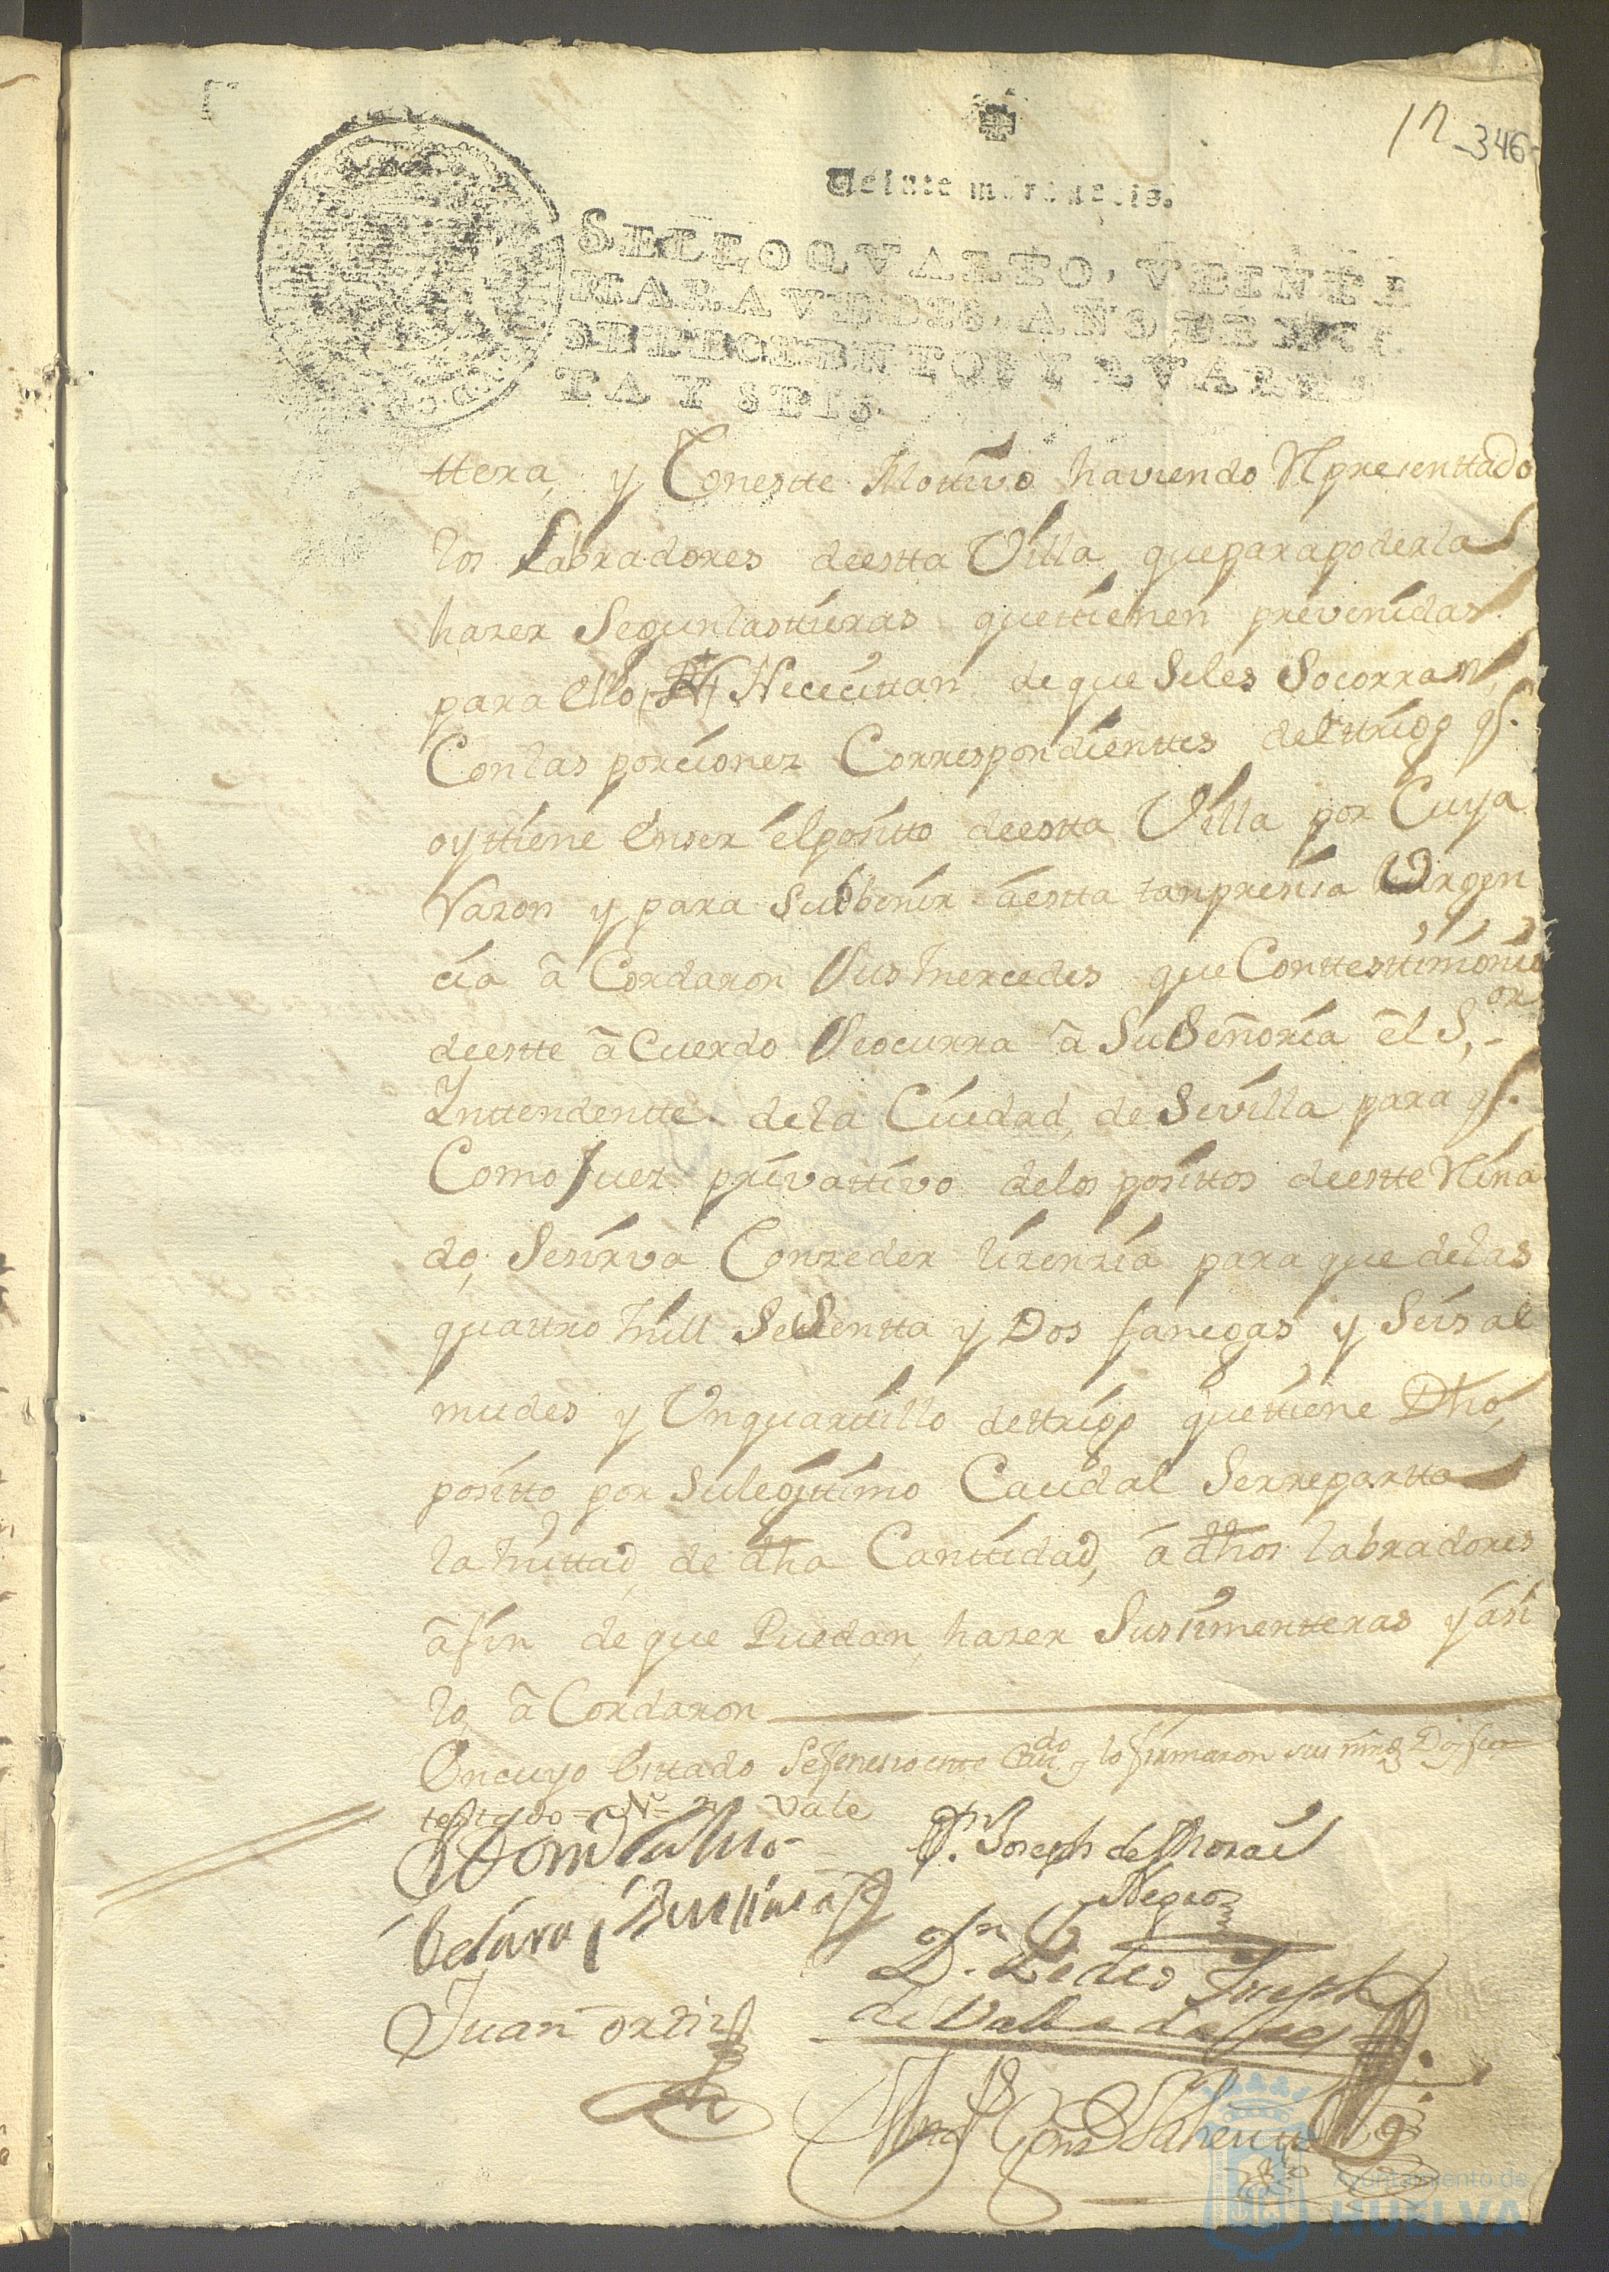 12
-346-
Veinte maravedis.
SELLO QVARTO, VEINTE
MARAVEDIS, AÑO DE MIL
SETECIENTOS Y QVAREN
TA Y SEIS.
ttera, y Conestte Mottivo haviendo Rpresenttado
los Labradores deestta Villa, queparapoderla
hazer Segunlasttierras quettienen prevenidas
para Ello, Nececittan de que Seles Socorran,
Conlas porcionez Correspondienttes delttrigo q.
oy ttiene Enser elposito deestta Villa por Cuya
Razon y para Subbenir âestta tanpresisa Urgen
cia â Cordaron Sus mercedes que Conttesttimonio
deestte â Cuerdo Seocurra â SuSeñoria êl S.or
Inttendentte de la Ciudad, de Sevilla para q.
Como Juez privattivo delos posittos deestte Reina
do, Sesirva Conzeder lizenzia para que delas
quattro mill SeSentta y Dos fanegas y Seis al
mudes y Unquarttillo dettrigo quettiene Dho,
positto por Sulegittimo Caudal Serrepartta
la mittad, de dha Canttidad, â dhos labradores
âfin de que Puedan, hazer Sussimentteras y asi
lo, â Cordaron
Encuyo Esttado Sefenesio este Cav.do y lo firmaron sus mrds Doy fee
testtado = N = no Vale
D.n Joseph de Moral
Negro
Juan ortiz
D.n Pedro Joseph
de Valladares
Ayuntamiento de
HUELVA